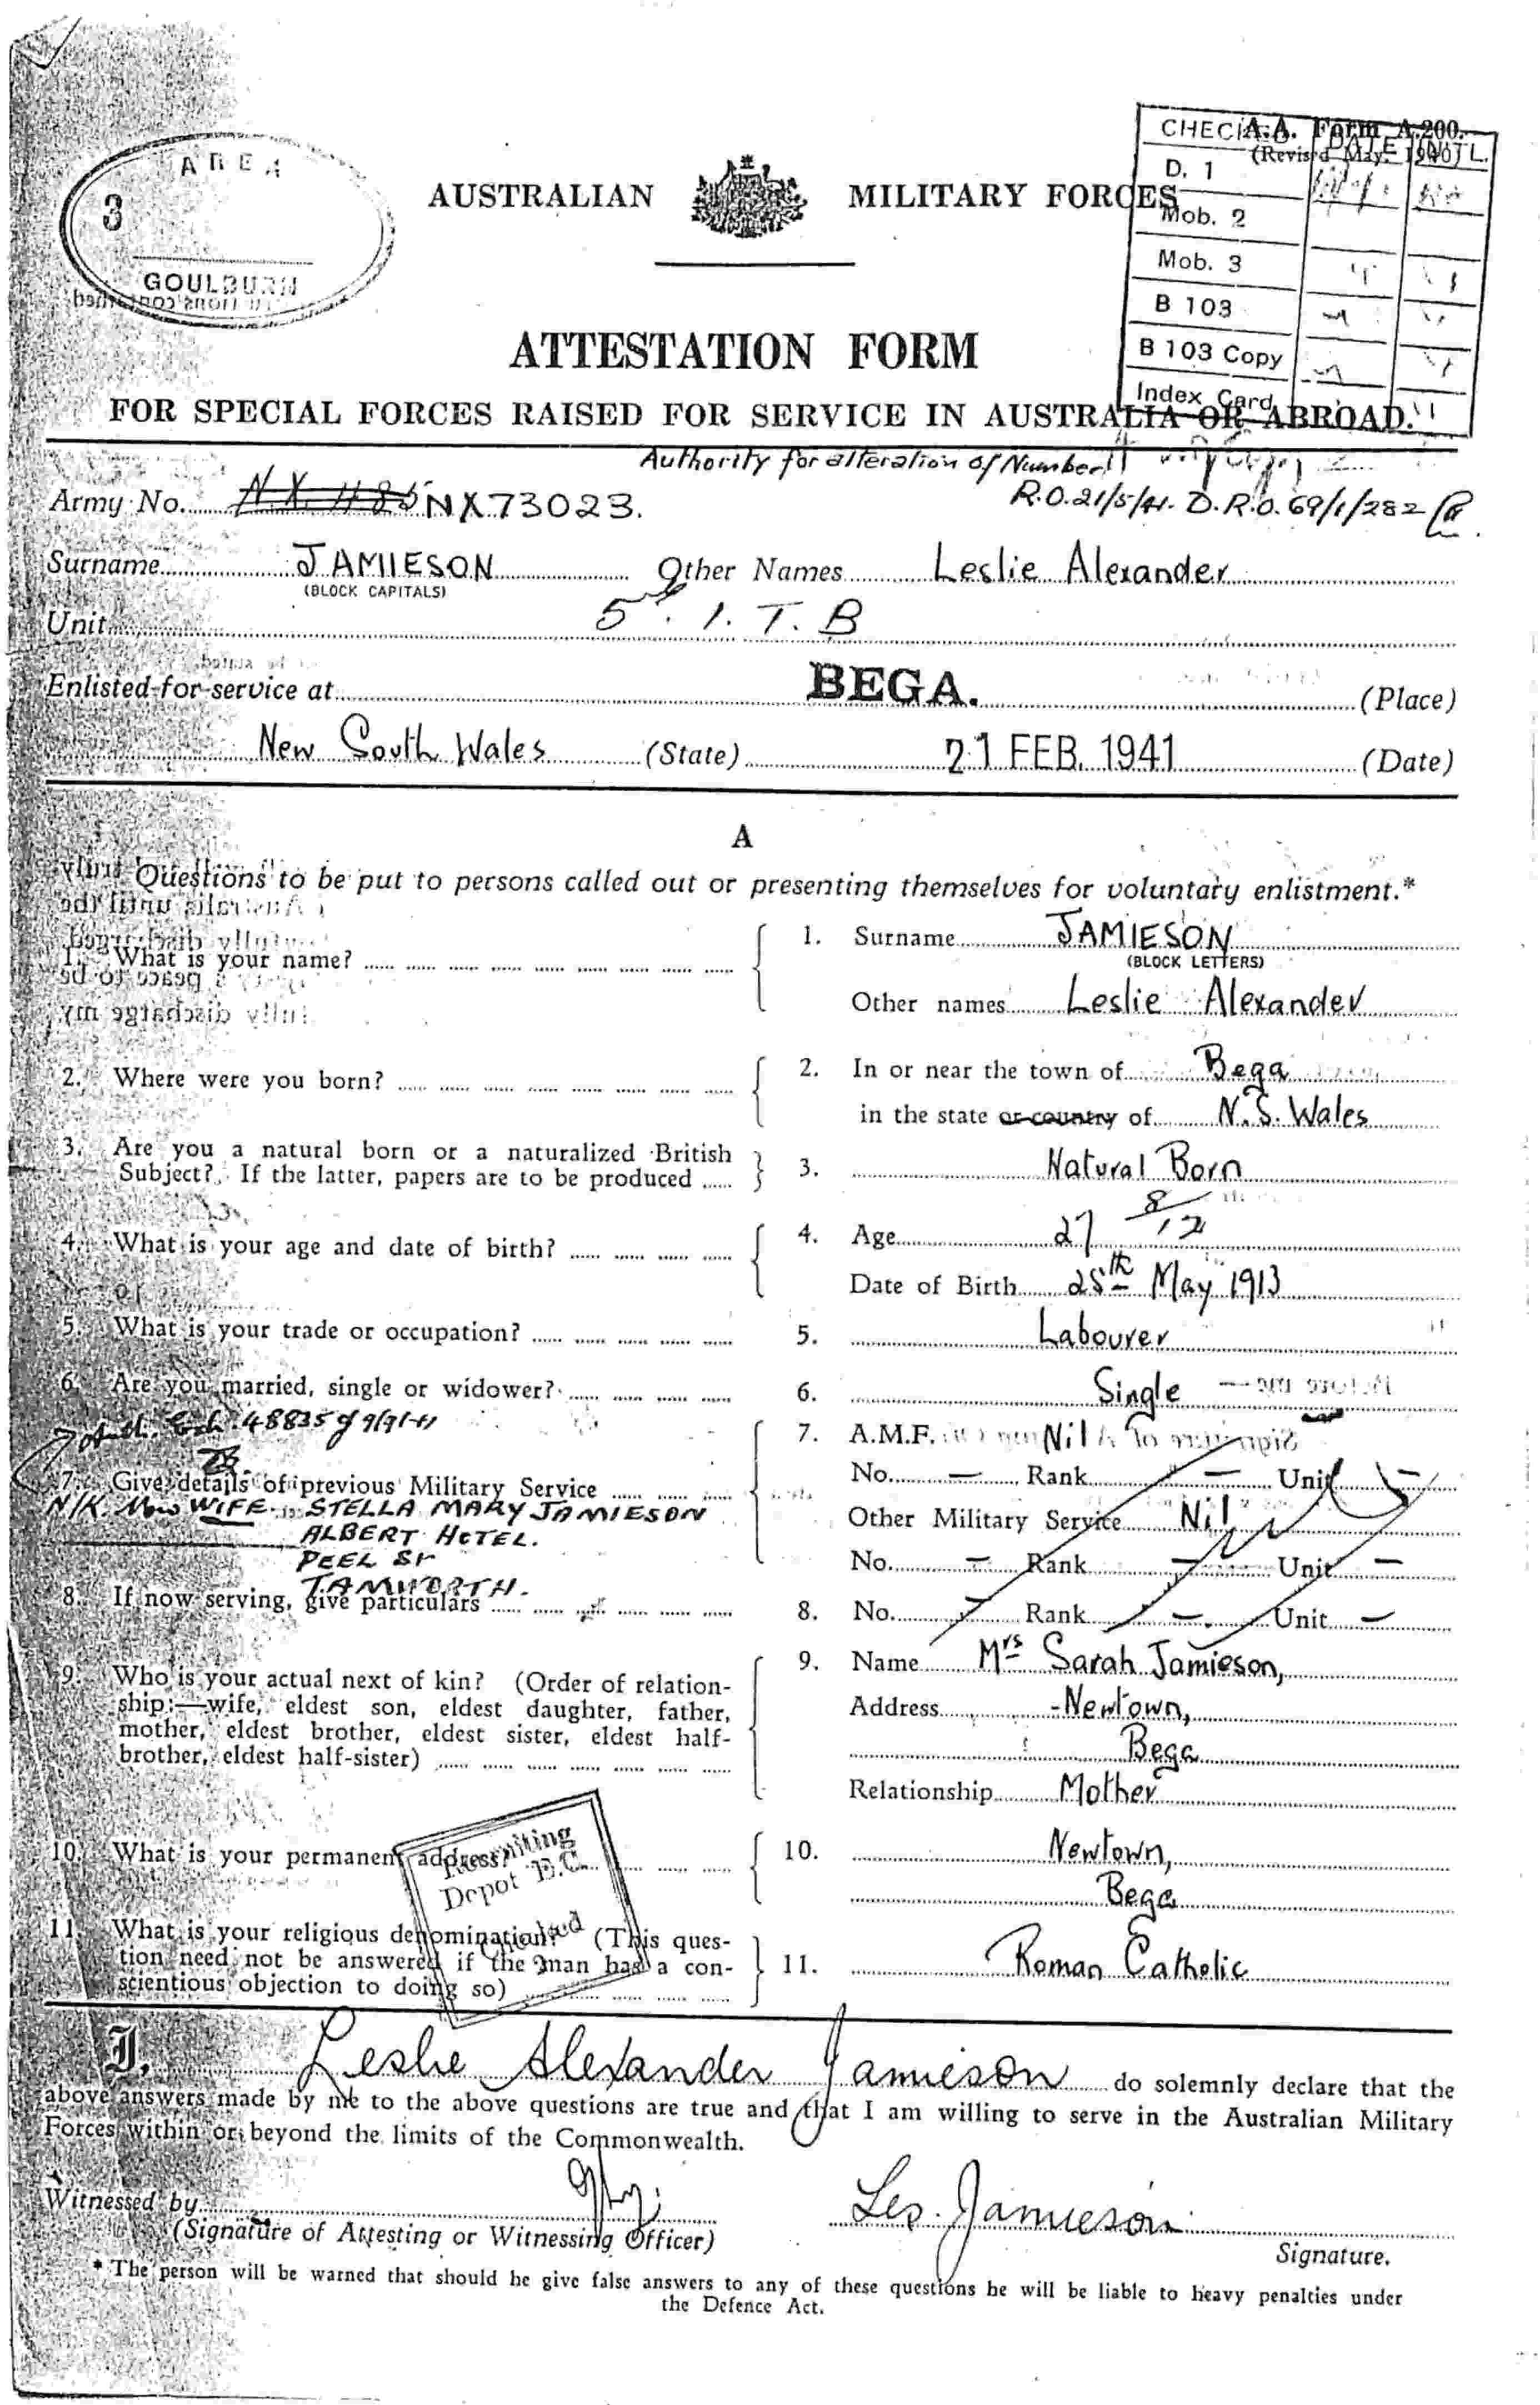 A.A. Form A.200.
(Revised May, 1940)
CHECKED DATE INTL.
D. 1
Mob. 2
Mob. 3
B 103
B 103 Copy
Index Card
AREA
3
GOULBURN
AUSTRALIAN MILITARY FORCES
ATTESTATION FORM
FOR SPECIAL FORCES RAISED FOR SERVICE IN AUSTRALIA OR ABROAD.
Authority for alteration of Number
R.O. 21/5/41. D.R.O. 69/1/282
Army No. NX73023.
Surname JAMIESON Other Names Leslie Alexander
(BLOCK CAPITALS)
Unit 5. I. T. B
Enlisted for service at BEGA. (Place)
New South Wales (State) 21 FEB. 1941 (Date)
A
Questions to be put to persons called out or presenting themselves for voluntary enlistment.*
1. What is your name? 1. Surname JAMIESON
(BLOCK LETTERS)
Other names Leslie Alexander
2. Where were you born? 2. In or near the town of Bega
in the state or country of N.S. Wales
3. Are you a natural born or a naturalized British
Subject? If the latter, papers are to be produced 3. Natural Born
4. What is your age and date of birth? 4. Age 27 8/12
Date of Birth 25th May 1913
5. What is your trade or occupation? 5. Labourer
6. Are you married, single or widower? 6. Single
Auth. 48835 of 9/9/41
7. A.M.F. Nil
7. Give details of previous Military Service No. — Rank — Unit —
N/K. Now WIFE STELLA MARY JAMIESON
ALBERT HOTEL.
PEEL St
TAMWORTH.
Other Military Service Nil
No. — Rank — Unit —
8. If now serving, give particulars 8. No. — Rank — Unit —
9. Who is your actual next of kin? (Order of relation-
ship:—wife, eldest son, eldest daughter, father,
mother, eldest brother, eldest sister, eldest half-
brother, eldest half-sister)
9. Name Mrs Sarah Jamieson,
Address Newtown,
Bega
Relationship Mother
10. What is your permanent address? 10. Newtown,
Bega
Recruiting
Depot E.C.
11. What is your religious denomination? (This ques-
tion need not be answered if the man has a con-
scientious objection to doing so) 11. Roman Catholic
I, Leslie Alexander Jamieson do solemnly declare that the
above answers made by me to the above questions are true and that I am willing to serve in the Australian Military
Forces within or beyond the limits of the Commonwealth.
Witnessed by Les. Jamieson
(Signature of Attesting or Witnessing Officer) Signature.
* The person will be warned that should he give false answers to any of these questions he will be liable to heavy penalties under
the Defence Act.